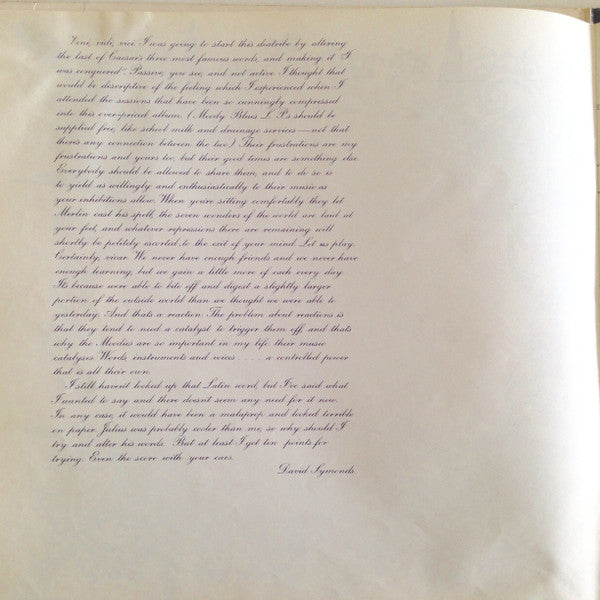 Veni, vidi, vice. I was going to start this diatribe by altering
the last of Caesar's three most famous words, and making it "I
was conquered". Passive, you see, and not active. I thought that
would be descriptive of the feeling which I experienced when I
attended the sessions that have been so cunningly compressed
into this over-priced album. (Moody Blues L.P.s should be
supplied free, like school milk and drainage services — not that
there's any connection between the two.) Their frustrations are my
frustrations and yours too, but their good times are something else.
Everybody should be allowed to share them, and to do so is
to yield as willingly and enthusiastically to their music as
your inhibitions allow. When you're sitting comfortably they let
Merlin cast his spell, the seven wonders of the world are laid at
your feet, and whatever repressions there are remaining will
shortly be politely escorted to the exit of your mind. Let us play.
Certainly, vicar. We never have enough friends and we never have
enough learning, but we gain a little more of each every day.
Its because were able to bite off and digest a slightly larger
portion of the outside world than we thought we were able to
yesterday. And thats a reaction. The problem about reactions is
that they tend to need a catalyst to trigger them off, and thats
why the Moodies are so important in my life: their music
catalyses. Words, instruments and voices . . . . . a controlled power
that is all their own.
I still haven't looked up that Latin word, but I've said what
I wanted to say and there doesnt seem any need for it now.
In any case, it would have been a malaprop and looked terrible
on paper. Julius was probably cooler than me, so why should I
try and alter his words. But at least I got ten points for
trying. Even the score with your ears.
David Symonds.